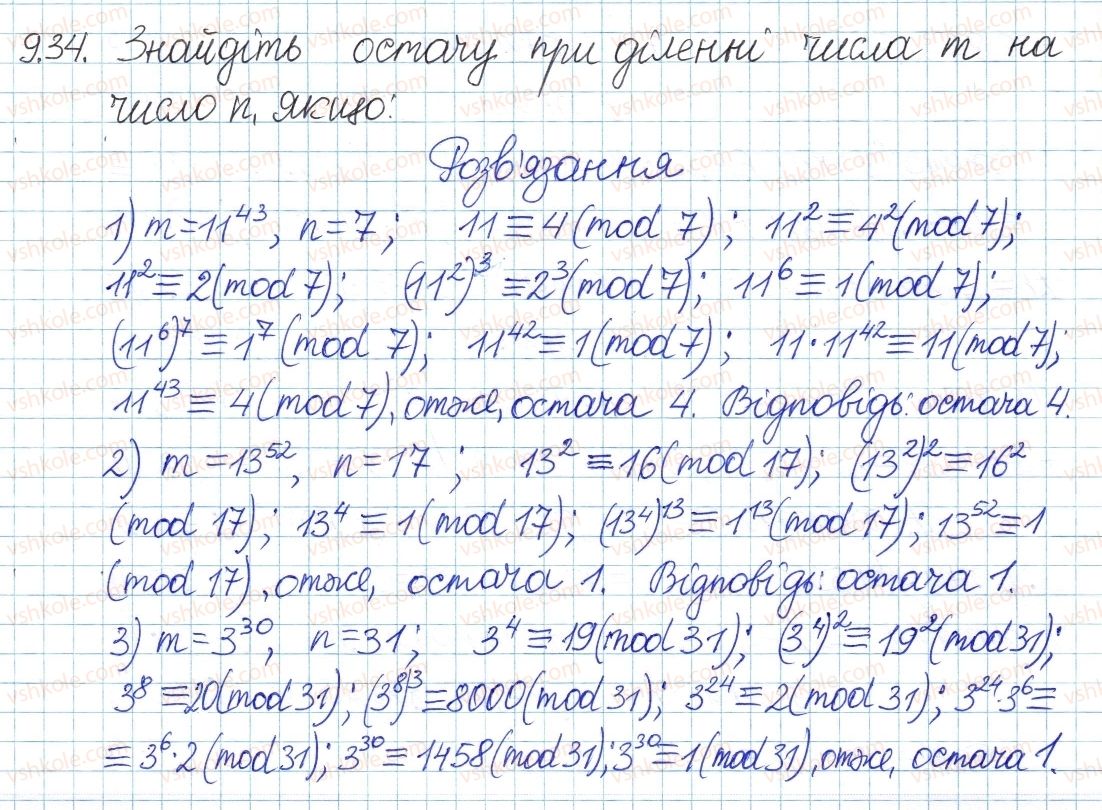 9.34. Знайдіть остачу при діленні числа m на
число n, якщо:
Розв'язання
1) m = 11⁴³, n = 7; 11 ≡ 4 (mod 7); 11² ≡ 4² (mod 7);
11² ≡ 2 (mod 7); (11²)³ ≡ 2³ (mod 7); 11⁶ ≡ 1 (mod 7);
(11⁶)⁷ ≡ 1⁷ (mod 7); 11⁴² ≡ 1 (mod 7); 11 · 11⁴² ≡ 11 (mod 7);
11⁴³ ≡ 4 (mod 7), отже, остача 4. Відповідь: остача 4.
2) m = 13⁵², n = 17; 13² ≡ 16 (mod 17); (13²)² ≡ 16²
(mod 17); 13⁴ ≡ 1 (mod 17); (13⁴)¹³ ≡ 1¹³ (mod 17); 13⁵² ≡ 1
(mod 17), отже, остача 1. Відповідь: остача 1.
3) m = 3³⁰, n = 31; 3⁴ ≡ 19 (mod 31); (3⁴)² ≡ 19² (mod 31);
3⁸ ≡ 20 (mod 31); (3⁸)³ ≡ 8000 (mod 31); 3²⁴ ≡ 2 (mod 31); 3²⁴ · 3⁶ ≡
≡ 3⁶ · 2 (mod 31); 3³⁰ ≡ 1458 (mod 31); 3³⁰ ≡ 1 (mod 31), отже, остача 1.